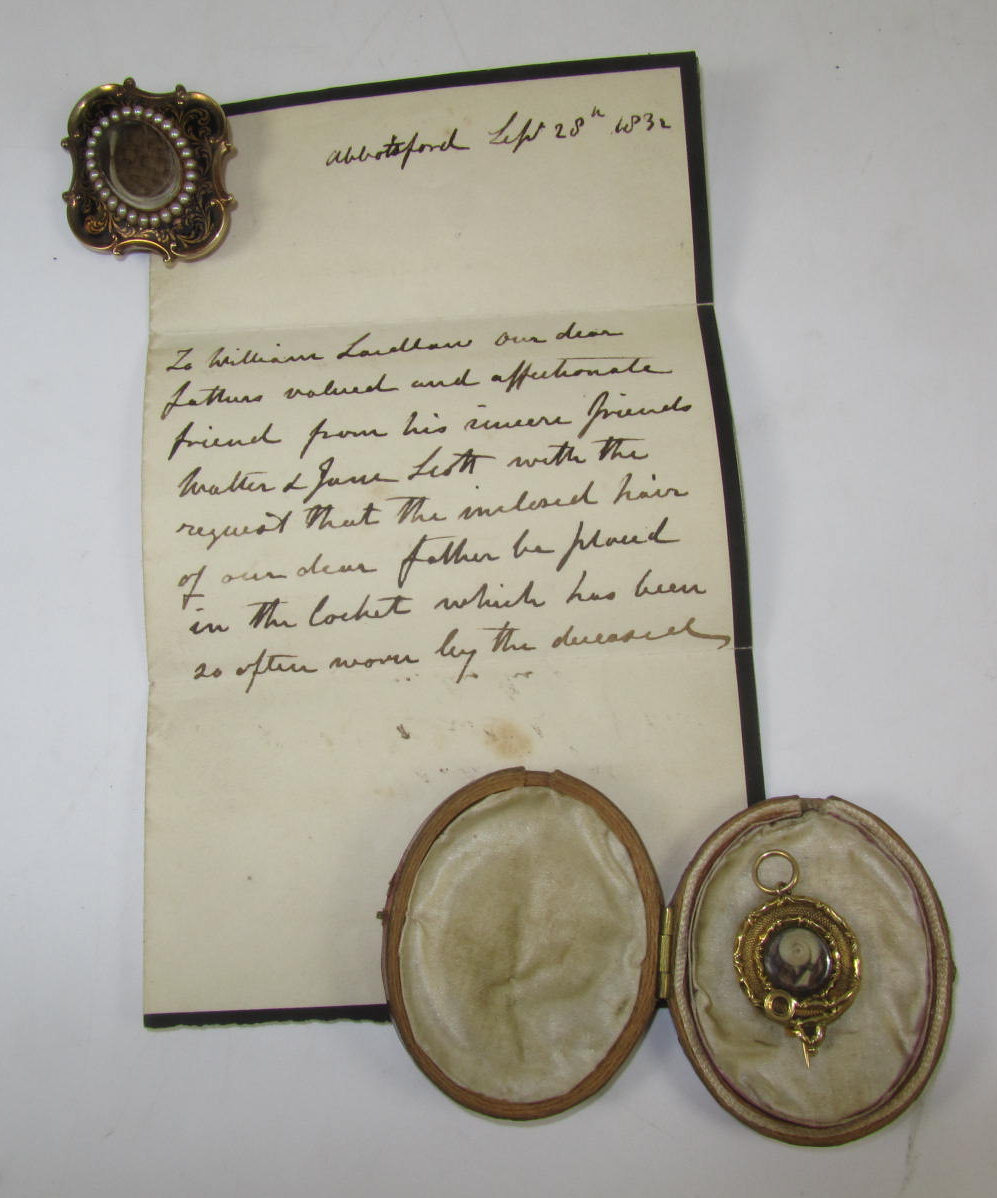 Abbotsford Sept 28th 1832
To William Laidlaw our dear
fathers valued and affectionate
friend from his sincere friends
Walter & Jane Scott with the
request that the inclosed hair
of our dear father be placed
in the locket which has been
so often worn by the deceased